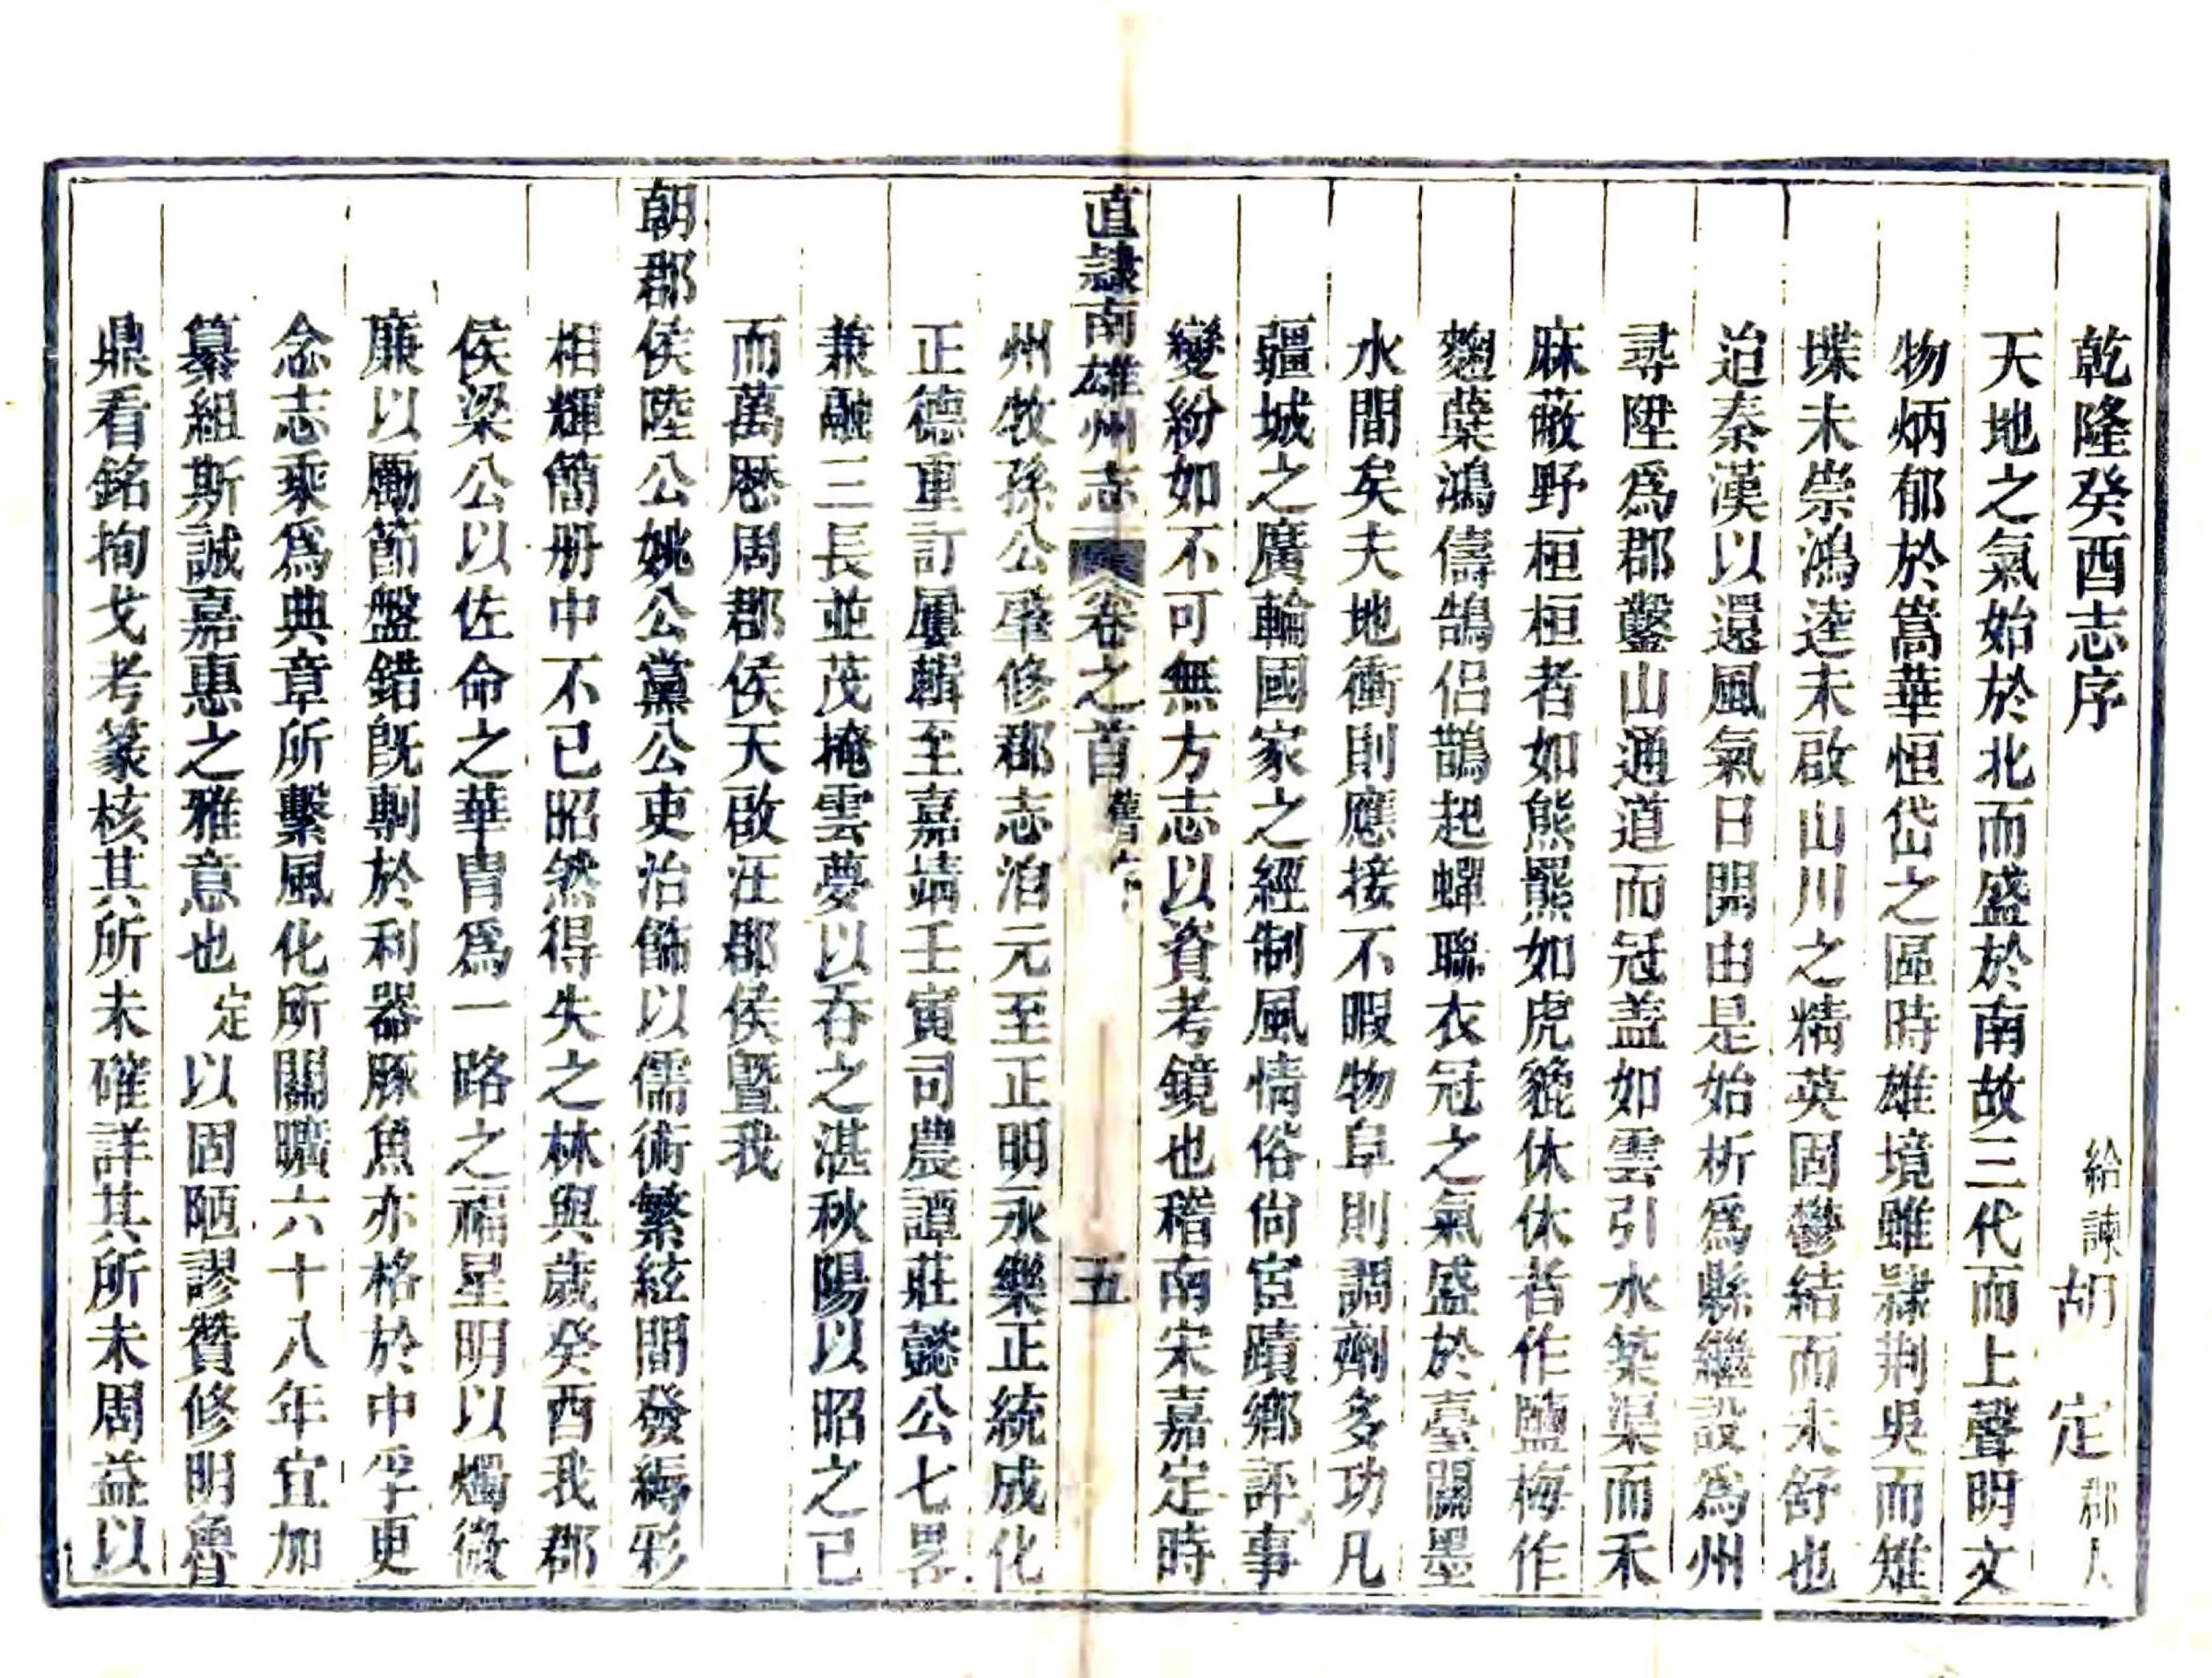 乾隆癸酉志序
給諫胡 定郡人
天地之氣始於北而盛於南故三代而上聲明文
物炳郁於嵩華恒岱之區時雄境雖隸荆吳而雉
堞未崇鴻逵未啟山川之精英固鬱結而未舒也
迨秦漢以還風氣日開由是始析爲縣繼設爲州
尋陞爲郡鑿山通道而冠盖如雲引水築渠而禾
麻蔽野桓桓者如熊羆如虎貔休休者作鹽梅作
麴蘖鴻儔鵠侣鵲起蟬聯衣冠之氣盛於臺閣墨
水間矣夫地衝則應接不暇物阜則調劑多功凡
疆城之廣輪國家之經制風情俗尙宦蹟鄉評事
變紛如不可無方志以資考鏡也稽南宋嘉定時
直隸南雄州志
卷之首 舊序
五
州牧孫公肇修郡志洎元至正明永樂正統成化
正德重訂屢輯至嘉靖壬寅司農譚莊懿公七畧
兼融三長並茂掩雲夢以吞之湛秋陽以昭之已
而萬厯周郡侯天啟汪郡侯暨我
朝郡侯陸公姚公黨公吏治飾以儒術繁絃間發縟彩
相輝簡册中不已昭然得失之林與歲癸酉我郡
侯梁公以佐命之華胄爲一路之福星明以燭微
廉以勵節盤錯旣剸於利器豚魚亦格於中孚更
念志乘爲典章所繫風化所關曠六十八年宜加
纂組斯誠嘉惠之雅意也定以固陋謬贊修明魯
鼎看銘拘戈考篆核其所未確詳其所未周益以